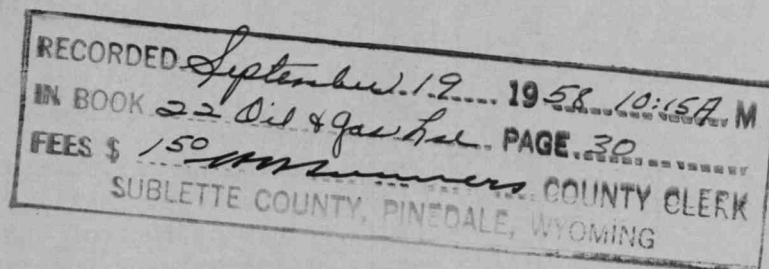 RECORDED September 19 1958 10:15A M
IN BOOK 22 Oil & Gas Lse PAGE 30
FEES $ 1.50 COUNTY CLERK
SUBLETTE COUNTY, PINEDALE, WYOMING